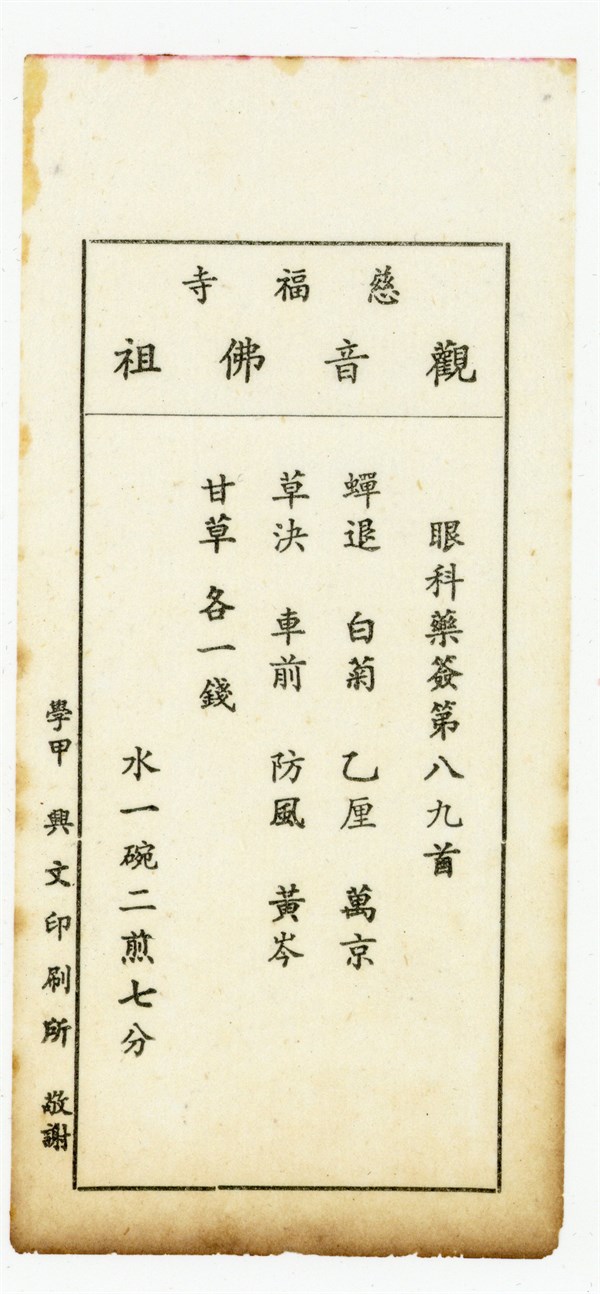 慈福寺
觀音佛祖
眼科藥簽第八九首
蟬退 白菊 乙厘 萬京
草決 車前 防風 黃岑
甘草 各一錢
水一碗二煎七分
學甲 興文印刷所 敬謝